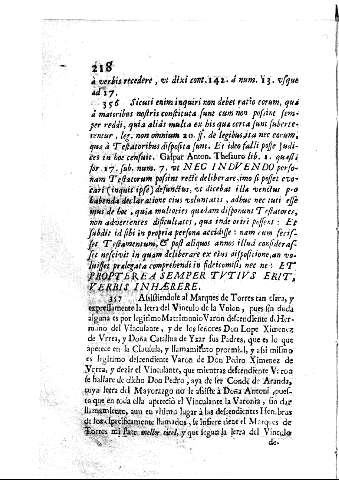 218
à verbis recedere, vt dixi cont. 142. á num. 13. vsque
ad 17.
356 Sicuti enim inquiri non debet ratio eorum, quæ
à maioribus nostris constituta sunt cum non possint sem-
per reddi, quia aliàs multa ex his quæ certa sunt subuerte-
rentur, leg. non omnium 20. ff. de legibus, ita nec eorum,
quæ à Testatoribus disposita sunt. Et ideo falli posse Judi-
ces in hoc censuit. Gaspar Anton. Thesauro lib. 1. quæst.
for. 17. sub num. 7. vt NEC INDVENDO perso-
nam Testatorum possint rectè deliberare, imo si posset euo-
cari (inquit ipse) defunctus, vt dicebat illa ventus pro
habenda declaratione eius voluntatis, adhuc nec tuti esse-
mus de hoc, quia multoties quædam disponunt Testatores,
non aduertentes dificultates, quæ inde oriri possent: Et
subdit id sibi in propria persona accidisse: nam cum fecis-
set Testamentum, & post aliquos annos illud consideras-
set nescivit in quadam deliberare ex eius dispositione, an vo-
luisset prælegata comprehendi in fideicomissi, nec ne: ET
PROPTEREA SEMPER TVTIVS ERIT,
VERBIS INHÆRERE.
357 Assistiendole al Marques de Torres tan clara, y
expressamente la letra del Vinculo de la Vnion, pues sin duda
alguna es por legitimo Matrimonio Varon descendiente de Her-
mano del Vinculante, y de los señores Don Lope Ximenez
de Vrrea, y Doña Catalina de Yzar sus Padres, que es lo que
apetece en la Clausula, y llamamiento proximal, y assi mismo
es legitimo descendiente Varon de Don Pedro Ximenez de
Vrrea, y dezir el Vinculante, que mientras descendiente Varon
se hallare de dicho Don Pedro, aya de ser Conde de Aranda,
cuya letra del Mayorazgo no le assiste à Doña Antonia, pues-
ta que en toda ella apeteció el Vinculante la Varonia, sin dar
llamamiento, aun en vltimo lugar à las descendientes Hembras
de los especificamente llamados, se infiere tiene el Marques de
Torres mi parte mellor cicel, y que segun la letra del Vinculo
de-